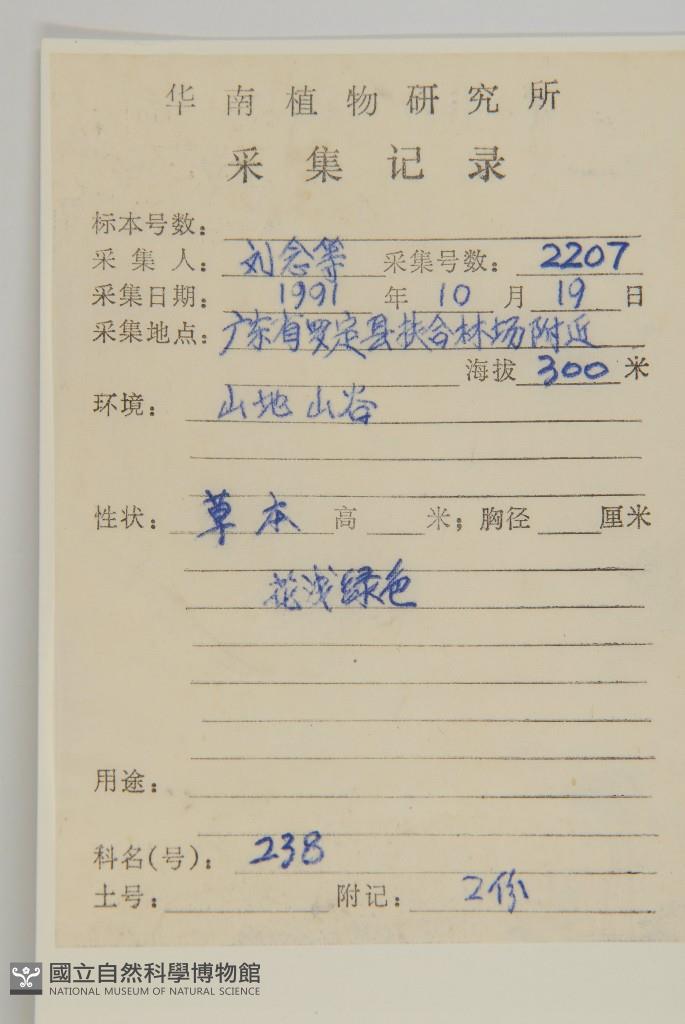 华南植物研究所
采集记录
标本号数：
采集人：刘念等 采集号数：2207
采集日期：1991年10月19日
采集地点：广东省罗定县扶合林场附近
海拔300米
环境：山地 山谷
性状：草本 高 米；胸径 厘米
花浅绿色
用途：
科名(号)：238
土号： 附记：2份
國立自然科學博物館
NATIONAL MUSEUM OF NATURAL SCIENCE